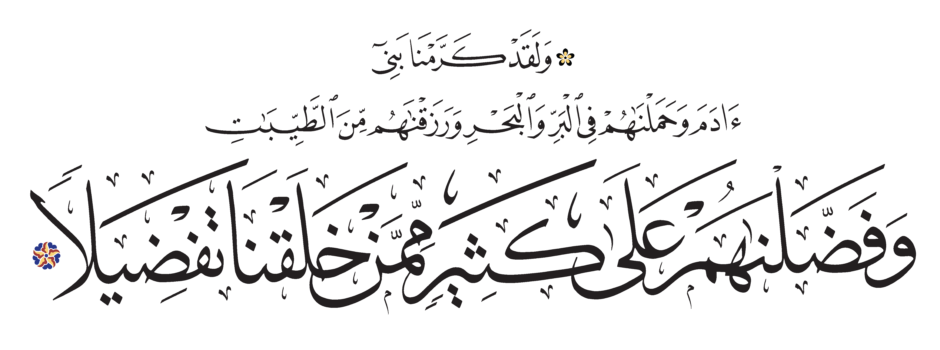 وَلَقَدْ كَرَّمْنَا بَنِىٓ
ءَادَمَ وَحَمَلْنَٰهُمْ فِى ٱلْبَرِّ وَٱلْبَحْرِ وَرَزَقْنَٰهُم مِّنَ ٱلطَّيِّبَٰتِ
وَفَضَّلْنَٰهُمْ عَلَىٰ كَثِيرٍ مِّمَّنْ خَلَقْنَا تَفْضِيلًا